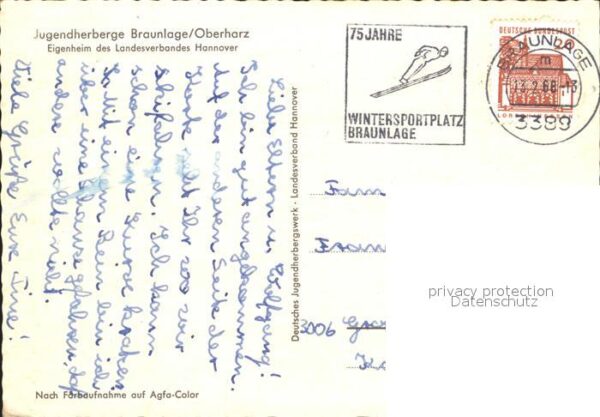 Jugendherberge Braunlage/Oberharz
Eigenheim des Landesverbandes Hannover
75 JAHRE
WINTERSPORTPLATZ
BRAUNLAGE
DEUTSCHE BUNDESPOST
BRAUNLAGE
m
13.2.68
3389
LORSCH
Liebe Eltern u. Wolfgang!
Ich bin gut angekommen.
Auf der anderen Seite der
Karte seht Ihr wo wir
schlafen. Ich kann
schon eine Kurve fahren.
Mit einem Bein bin ich
über eine Schanze gefahren, das
andere wollte nicht.
Viele Grüße Eure
Deutsches Jugendherbergswerk · Landesverband Hannover
Fam
3006
Nach Farbaufnahme auf Agfa-Color
privacy protection
Datenschutz